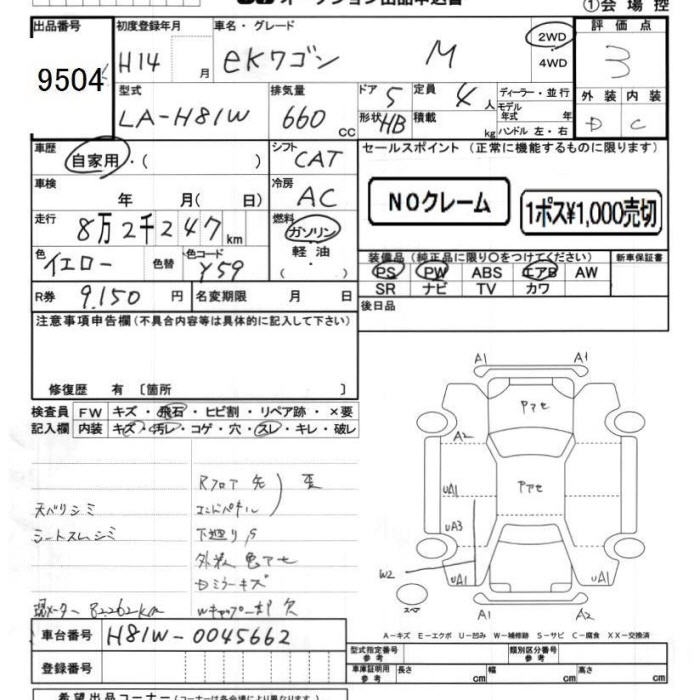 オークション出品申込書 ①会場控
出品番号 9504
初度登録年月 H14 月
車名・グレード eKワゴン M
2WD・4WD
評価点 3
外装 D 内装 C
型式 LA-H81W
排気量 660 cc
ドア 5 形状 HB
定員 4 人 積載 kg
ディーラー・並行
モデル年式 年
ハンドル 左・右
車歴 自家用・( )
シフト CAT
車検 年 月( 日)
冷房 AC
走行 8万2千247 km
燃料 ガソリン・軽油・( )
色 イエロー 色替 色コード Y59
R券 9,150 円 名変期限 月 日
セールスポイント (正常に機能するものに限ります)
NOクレーム
1ポス¥1,000売切
装備品(純正品に限り○をつけてください) 新車保証書
PS PW ABS エアB AW
SR ナビ TV カワ
後日品
注意事項申告欄(不具合内容等は具体的に記入して下さい)
修復歴 有 〔箇所 〕
検査員記入欄
FW キズ・飛石・ヒビ割・リペア跡・×要
内装 キズ・汚レ・コゲ・穴・スレ・キレ・破レ
Rフロア 先 歪
エンドパネル
天バリシミ
シートスレシミ
下廻りS
外装色アセ
Dミラーキズ
Wキャップ一部欠
現メーター 82262km
A1 A1
アアセ
A2
アアセ
UA1
UA3
W2
UA1 UA1
スペア
A1 A2
A-キズ E-エクボ U-凹み W-補修跡 S-サビ C-腐食 XX-交換済
車台番号 H81W-0045662
登録番号
型式指定番号 参考 類別区分番号 参考
車庫証明用 参考 長さ cm 幅 cm 高さ cm
希望出品コーナー(コーナーは各会場により異なります)